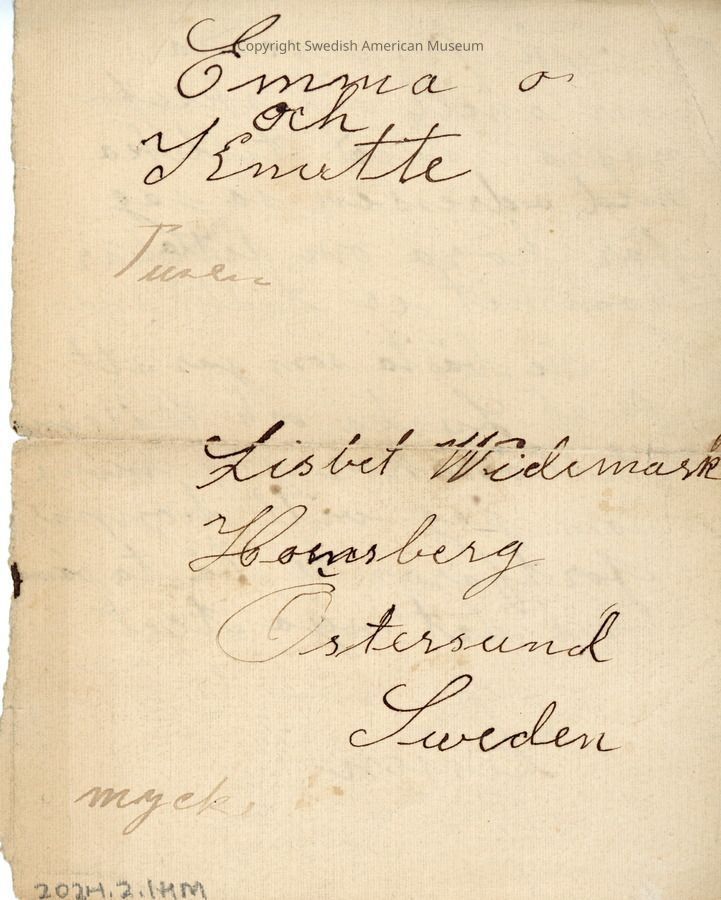 Copyright Swedish American Museum
Emma o
och
Tusen
Lisbet Widemark
Hornsberg
Östersund
Sweden
myck
2024.2.14M